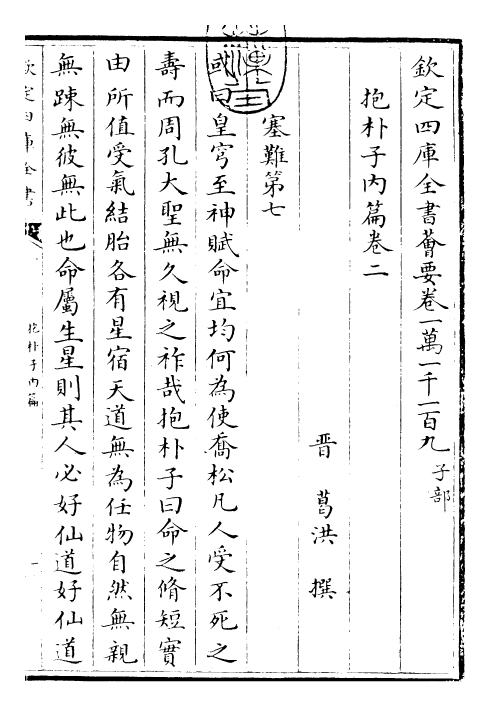 欽定四庫全書薈要卷一萬一千一百九 子部
抱朴子內篇卷二
晋 葛洪 撰
塞難第七
或曰皇穹至神賦命宜均何為使喬松凡人受不死之
壽而周孔大聖無久視之祚哉抱朴子曰命之脩短實
由所值受氣結胎各有星宿天道無為任物自然無親
無踈無彼無此也命屬生星則其人必好仙道好仙道
欽定四庫全書
抱朴子內篇
一